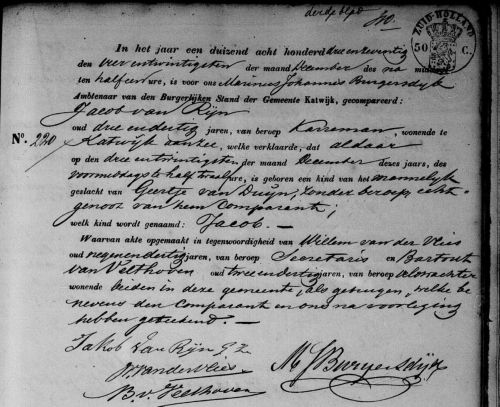 derde blad
40.
ZUID-HOLLAND
50 C.
In het jaar een duizend acht honderd drie en twintig
den vier en twintigsten der maand December des na middags
ten half een ure, is voor ons Marinus Johannes Burgersdyk
Ambtenaar van den Burgerlijken Stand der Gemeente Katwijk, gecompareerd:
Jacob van Rijn
oud drie en dertig jaren, van beroep Karreman, wonende te
No. 220 Katwijk aan zee, welke verklaarde, dat aldaar
op den drie en twintigsten der maand December dezes jaars, des
voormiddags te half twaalf ure, is geboren een kind van het mannelijk
geslacht van Geertje van Duijn, zonder beroep, echt-
genoot van hem Comparant;
welk kind wordt genaamd: Jacob. —
Waarvan akte opgemaakt in tegenwoordigheid van Willem van der Vlies
oud negen en dertig jaren, van beroep Secretaris en Bartout
van Velthoven oud twee en dertig jaren, van beroep veldwachter
wonende beiden in deze gemeente, als getuigen, welke be
nevens den Comparant en ons na voorlezing
hebben geteekend. —
Jakob Van Rijn G Z
W vander Vlies
M J Burgersdijk
B. v. Velthoven